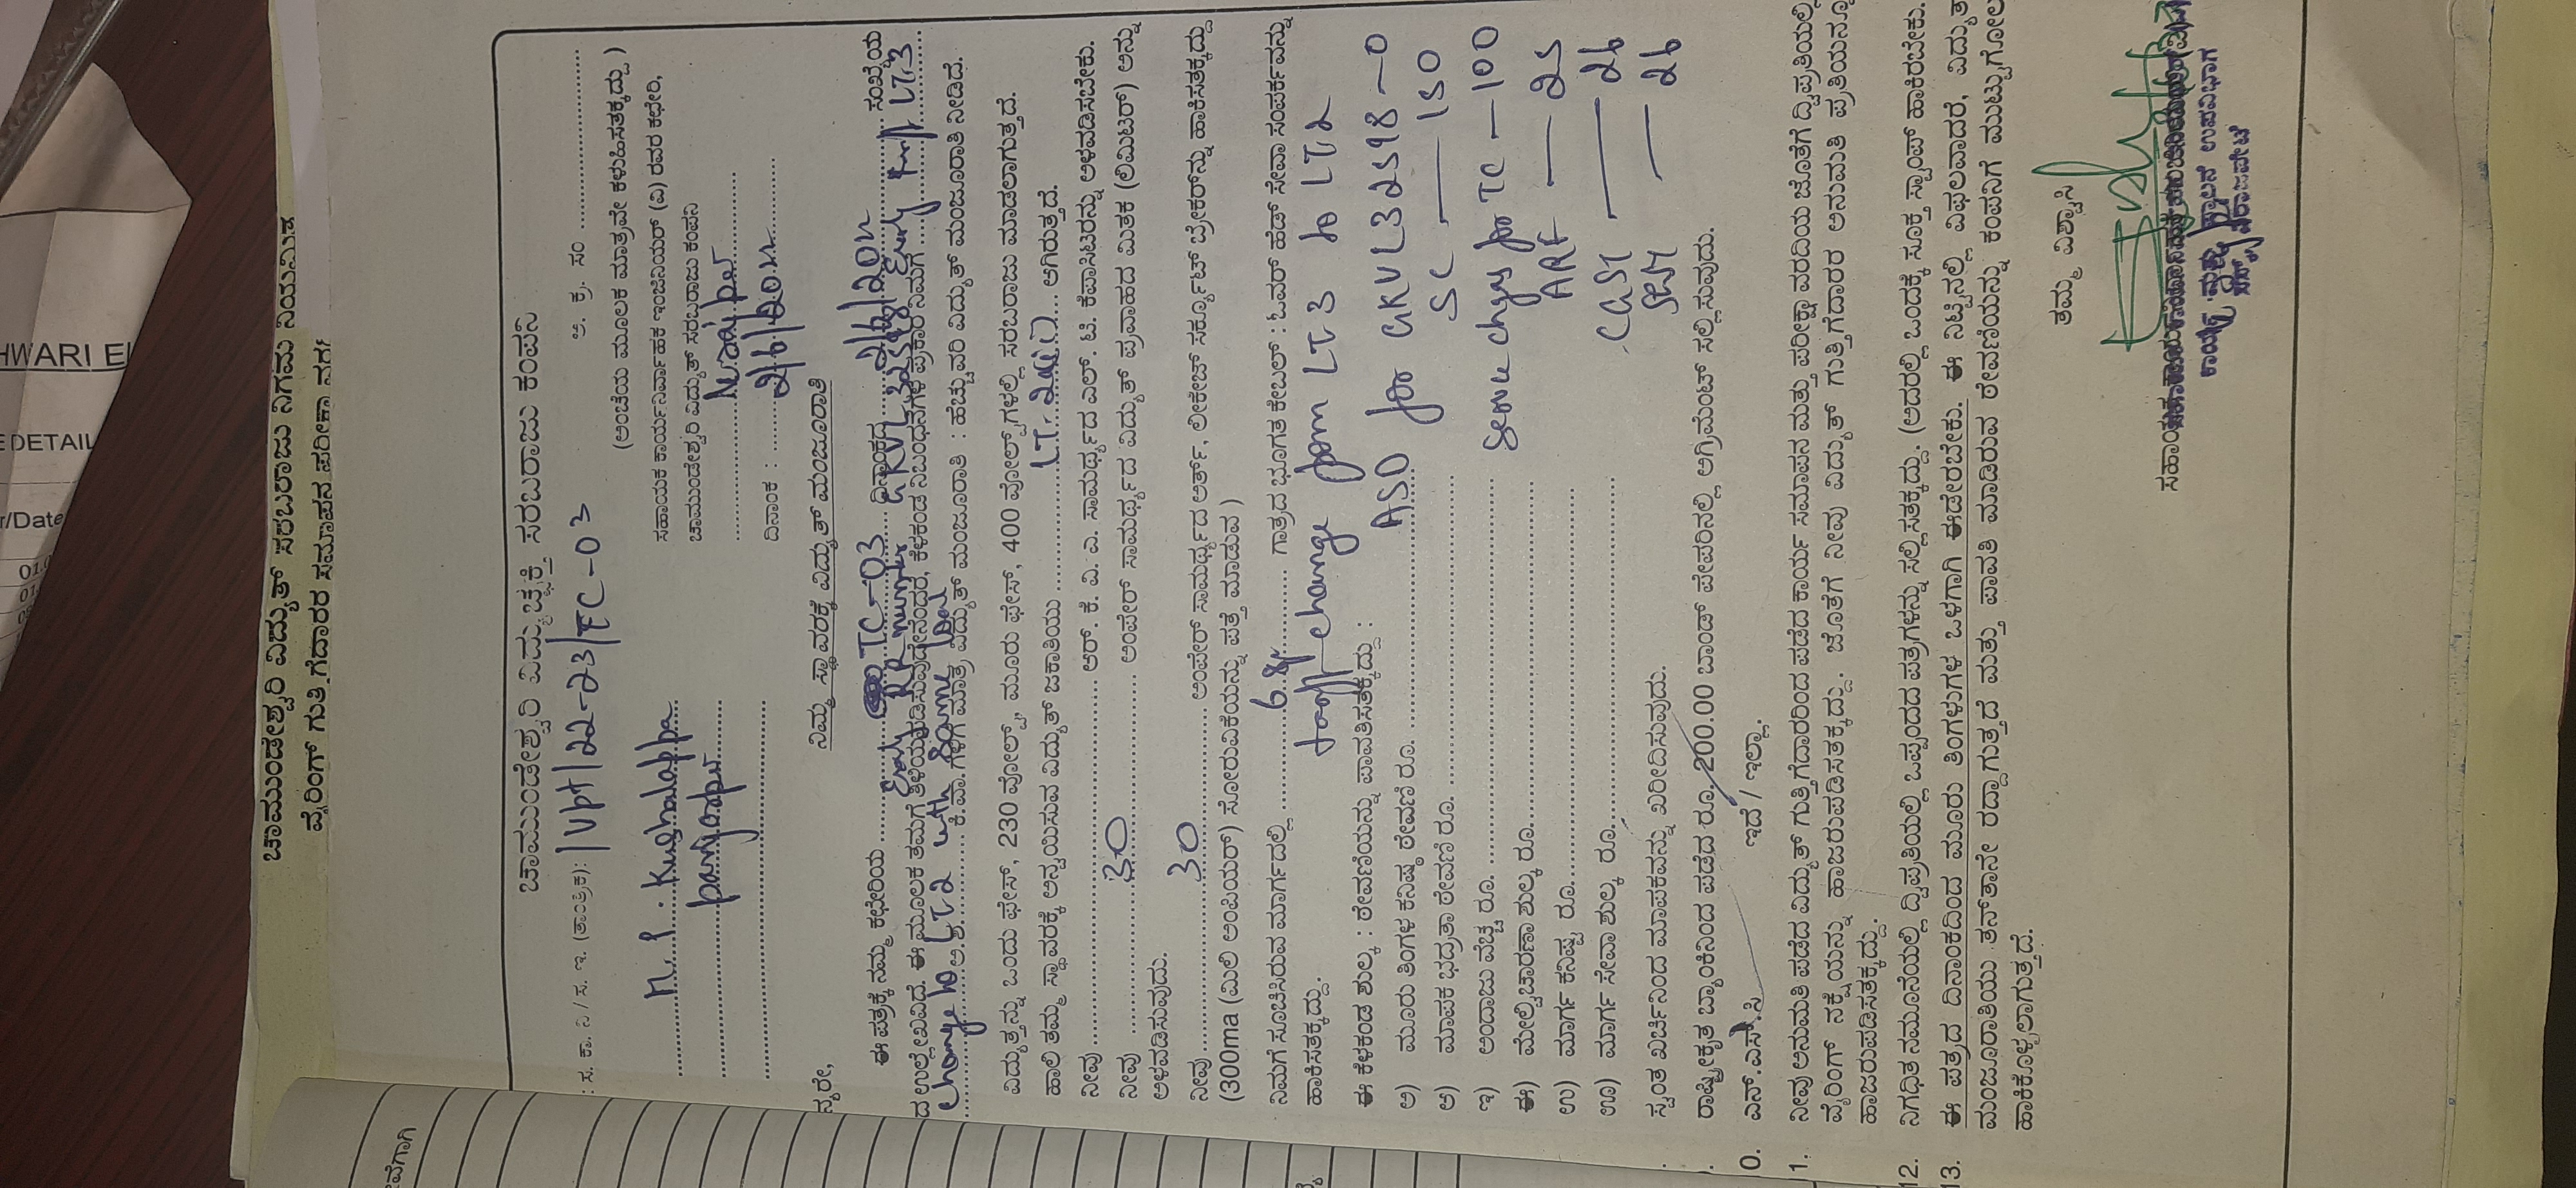 HWARI E
E DETAIL
r/Date
ಚಾಮುಂಡೇಶ್ವರಿ ವಿದ್ಯುತ್ ಸರಬರಾಜು ನಿಗಮ ನಿಯಮಿತ
ವೈರಿಂಗ್ ಗುತ್ತಿಗೆದಾರರ ಸಮಾಪನ ಪರೀಕ್ಷಾ ವರದಿ
ಚಾಮುಂಡೇಶ್ವರಿ ವಿದ್ಯುಚ್ಛಕ್ತಿ ಸರಬರಾಜು ಕಂಪನಿ
: ಸ. ಕಾ. ನಿ / ಸ. ಇ. (ತಾಂತ್ರಿಕ): /VPt/22-23/TC-03 ಅ. ಕ್ರ. ಸಂ
(ಅಂಚೆಯ ಮೂಲಕ ಮಾತ್ರವೇ ಕಳುಹಿಸತಕ್ಕದ್ದು)
ಸಹಾಯಕ ಕಾರ್ಯನಿರ್ವಾಹಕ ಇಂಜಿನಿಯರ್ (ವಿ) ರವರ ಕಛೇರಿ,
ಚಾಮುಂಡೇಶ್ವರಿ ವಿದ್ಯುತ್ ಸರಬರಾಜು ಕಂಪನಿ
ದಿನಾಂಕ :
ನಿಮ್ಮ ಸ್ಥಾವರಕ್ಕೆ ವಿದ್ಯುತ್ ಮಂಜೂರಾತಿ
ನ್ಯರೇ,
ಈ ಪತ್ರಕ್ಕೆ ನಮ್ಮ ಕಛೇರಿಯ TC-03 ದಿನಾಂಕದ ಸಂಖ್ಯೆಯ
ದ ಉಲ್ಲೇಖವಿದೆ. ಈ ಮೂಲಕ ತಮಗೆ ತಿಳಿಯಪಡಿಸುವುದೇನೆಂದರೆ, ಕೆಳಕಂಡ ನಿಬಂಧನೆಗಳ ಪ್ರಕಾರ ನಿಮಗೆ LT3
change to LT2 with same load ಅ.ಶ. ಕಿ.ವಾ. ಗಳಿಗೆ ಮಾತ್ರ ವಿದ್ಯುತ್ ಮಂಜೂರಾತಿ : ಹೆಚ್ಚುವರಿ ವಿದ್ಯುತ್ ಮಂಜೂರಾತಿ ನೀಡಿದೆ.
ವಿದ್ಯುತ್ತನ್ನು ಒಂದು ಫೇಸ್, 230 ವೋಲ್ಟ್, ಮೂರು ಫೇಸ್, 400 ವೋಲ್ಟ್‌ಗಳಲ್ಲಿ ಸರಬರಾಜು ಮಾಡಲಾಗುತ್ತದೆ.
ಹಾಲಿ ತಮ್ಮ ಸ್ಥಾವರಕ್ಕೆ ಅನ್ವಯಿಸುವ ವಿದ್ಯುತ್ ಜಕಾತಿಯು ಆಗಿರುತ್ತದೆ.
ನೀವು ಆರ್. ಕೆ. ವಿ. ಎ. ಸಾಮರ್ಥ್ಯದ ಎಲ್. ಟಿ. ಕೆಪಾಸಿಟರನ್ನು ಅಳವಡಿಸಬೇಕು.
ನೀವು 30 ಅಂಪೇರ್ ಸಾಮರ್ಥ್ಯದ ವಿದ್ಯುತ್ ಪ್ರವಾಹದ ಮಿತಕ (ಲಿಮಿಟರ್) ಅನ್ನು
ಅಳವಡಿಸುವುದು.
ನೀವು 30 ಅಂಪೇರ್ ಸಾಮರ್ಥ್ಯದ ಅರ್ತ್, ಲೀಕೇಜ್ ಸರ್ಕ್ಯೂಟ್ ಬ್ರೇಕರ್‌ನ್ನು ಹಾಕಿಸತಕ್ಕದ್ದು
(300ma (ಮಿಲಿ ಅಂಪಿಯರ್) ಸೋರುವಿಕೆಯನ್ನು ಪತ್ತೆ ಮಾಡುವ )
ನಿಮಗೆ ಸೂಚಿಸಿರುವ ಮಾರ್ಗದಲ್ಲಿ ಗಾತ್ರದ ಭೂಗತ ಕೇಬಲ್ : ಓವರ್ ಹೆಡ್ ಸೇವಾ ಸಂಪರ್ಕವನ್ನು
ಹಾಕಿಸತಕ್ಕದ್ದು. change from LT3 to LT2
ಈ ಕೆಳಕಂಡ ಶುಲ್ಕ : ಠೇವಣಿಯನ್ನು ಪಾವತಿಸತಕ್ಕದ್ದು :
ಅ) ಮೂರು ತಿಂಗಳ ಕನಿಷ್ಠ ಠೇವಣಿ ರೂ. ASD for GKVL32598 — 0
ಆ) ಮಾಪಕ ಭದ್ರತಾ ಠೇವಣಿ ರೂ. SC — 150
ಇ) ಅಂದಾಜು ವೆಚ್ಚ ರೂ. for TC — 100
ಈ) ಮೇಲ್ವಿಚಾರಣಾ ಶುಲ್ಕ ರೂ. ARF — 25
ಉ) ಮಾರ್ಗ ಕನಿಷ್ಟ ರೂ. CGST — 26
ಊ) ಮಾರ್ಗ ಸೇವಾ ಶುಲ್ಕ ರೂ. — 26
ಸ್ವಂತ ಖರ್ಚಿನಿಂದ ಮಾಪಕವನ್ನು ಖರೀದಿಸುವುದು.
ರಾಷ್ಟ್ರೀಕೃತ ಬ್ಯಾಂಕಿನಿಂದ ಪಡೆದ ರೂ. 200.00 ಬಾಂಡ್ ಪೇಪರಿನಲ್ಲಿ ಅಗ್ರಿಮೆಂಟ್ ಸಲ್ಲಿಸುವುದು.
0. ಎನ್.ಎಸ್.ಸಿ ಇದೆ / ಇಲ್ಲಾ.
1. ನೀವು ಅನುಮತಿ ಪಡೆದ ವಿದ್ಯುತ್ ಗುತ್ತಿಗೆದಾರರಿಂದ ಪಡೆದ ಕಾರ್ಯ ಸಮಾಪನ ಮತ್ತು ಪರೀಕ್ಷಾ ವರದಿಯ ಜೊತೆಗೆ ದ್ವಿಪ್ರತಿಯಲ್ಲಿ
ವೈರಿಂಗ್ ನಕ್ಷೆಯನ್ನು ಹಾಜರುಪಡಿಸತಕ್ಕದ್ದು. ಜೊತೆಗೆ ನೀವು ವಿದ್ಯುತ್ ಗುತ್ತಿಗೆದಾರರ ಅನುಮತಿ ಪ್ರತಿಯನ್ನೂ
ಹಾಜರುಪಡಿಸತಕ್ಕದ್ದು.
12. ನಿಗಧಿತ ನಮೂನೆಯಲ್ಲಿ ದ್ವಿಪ್ರತಿಯಲ್ಲಿ ಒಪ್ಪಂದದ ಪತ್ರಗಳನ್ನು ಸಲ್ಲಿಸತಕ್ಕದ್ದು. (ಅದರಲ್ಲಿ ಒಂದಕ್ಕೆ ಸೂಕ್ತ ಸ್ಟಾಂಪ್ ಹಾಕಿರಬೇಕು.
13. ಈ ಪತ್ರದ ದಿನಾಂಕದಿಂದ ಮೂರು ತಿಂಗಳುಗಳ ಒಳಗಾಗಿ ಈಡೇರಬೇಕು. ಈ ನಿಟ್ಟಿನಲ್ಲಿ ವಿಫಲವಾದರೆ, ವಿದ್ಯುತ
ಮಂಜೂರಾತಿಯು ತನ್‌ತಾನೇ ರದ್ದಾಗುತ್ತದೆ ಮತ್ತು ಪಾವತಿ ಮಾಡಿರುವ ಠೇವಣಿಯನ್ನು ಕಂಪನಿಗೆ ಮುಟ್ಟುಗೋಲ
ಹಾಕಿಕೊಳ್ಳಲಾಗುತ್ತದೆ.
ತಮ್ಮ ವಿಶ್ವಾಸಿ